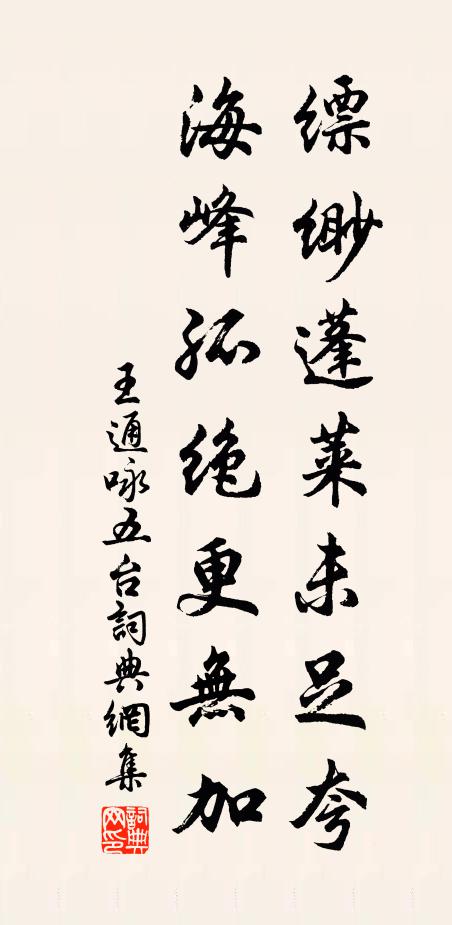 缥缈蓬莱未足夸
海峰孤绝更無加
王通咏五台詞典網集
詞典网印